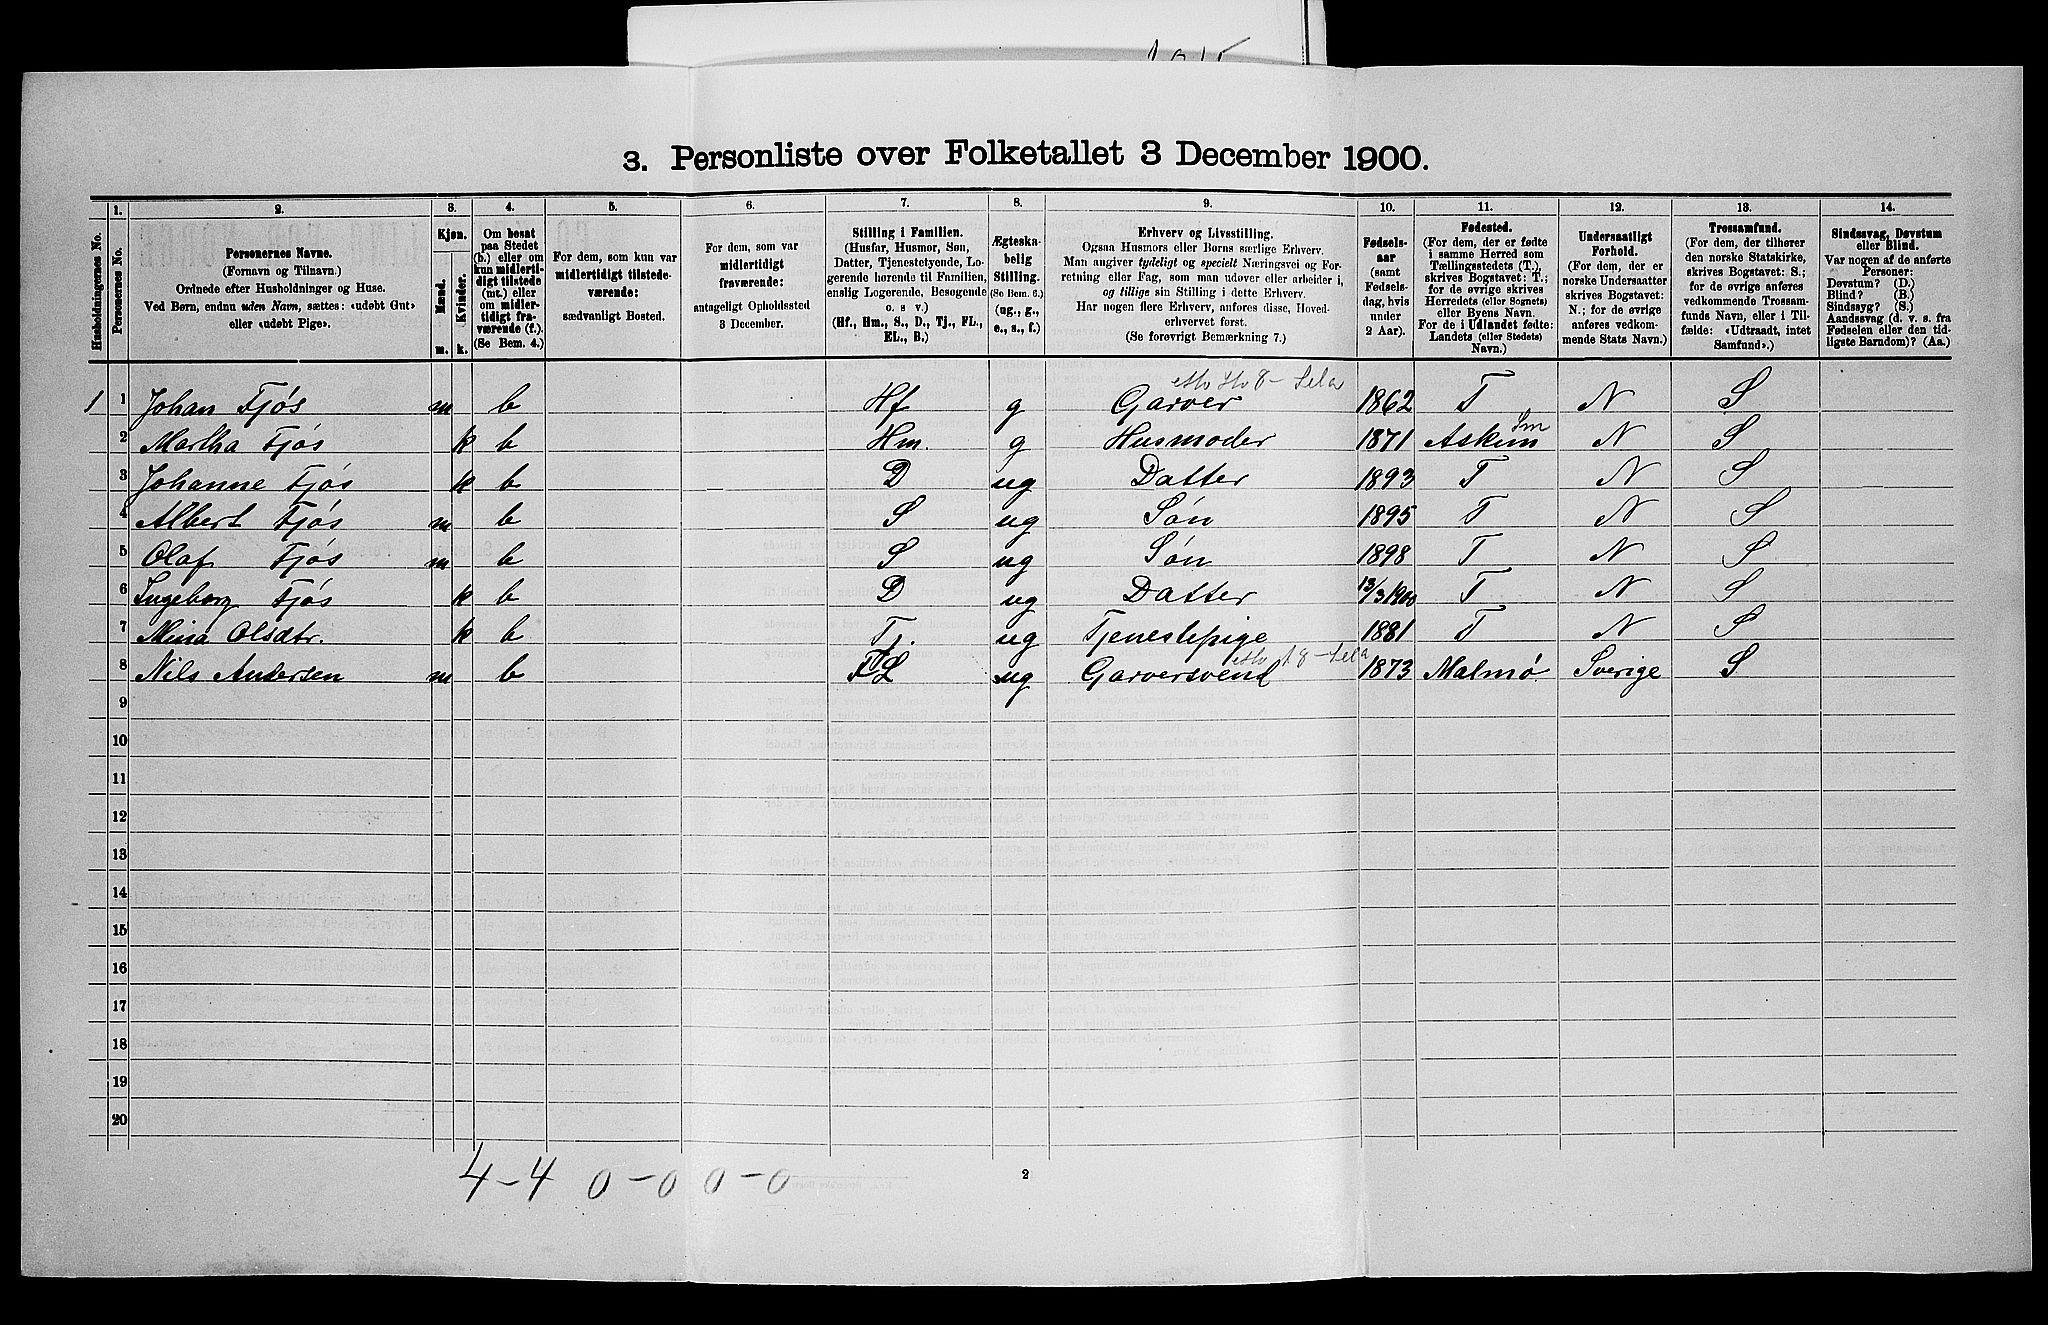 3. Personliste over Folketallet 3 December 1900.
Husholdningernes No.
1.
Personernes No.
2.
Personernes Navne.
(Fornavn og Tilnavn.)
Ordnede efter Husholdninger og Huse.
Ved Børn, endnu uden Navn, sættes: «udøbt Gut»
eller «udøbt Pige».
3.
Kjøn.
Mænd.
Kvinder.
m. k.
4.
Om bosat
paa Stedet
(b.) eller om
kun midlerti-
digt tilstede
(mt.) eller
om midler-
tidigt fra-
værende (f.).
(Se Bem. 4.)
5.
For dem, som kun var
midlertidigt tilstede-
værende:
sædvanligt Bosted.
6.
For dem, som var
midlertidigt
fraværende:
antageligt Opholdssted
3 December.
7.
Stilling i Familien.
(Husfar, Husmor, Søn,
Datter, Tjenestetyende, Lo-
gerende hørende til Familien,
enslig Logerende, Besøgende
o. s v.)
(Hf., Hm., S., D., Tj., FL.,
EL., B.)
8.
Ægteska-
belig
Stilling.
(Se Bem. 6.)
(ug., g.,
e., s., f.)
9.
Erhverv og Livsstilling.
Ogsaa Husmors eller Børns særlige Erhverv.
Man angiver tydeligt og specielt Næringsvei og For-
retning eller Fag, som man udøver eller arbeider i,
og tillige sin Stilling i dette Erhverv.
Har nogen flere Erhverv, anføres disse, Hoved-
erhvervet først.
(Se forøvrigt Bemærkning 7.)
10.
Fødsels-
aar
(samt
Fødsels-
dag, hvis
under
2 Aar).
11.
Fødested.
(For dem, der er fødte
i samme Herred som
Tællingsstedets (T.),
skrives Bogstavet: T.;
for de øvrige skrives
Herredets (eller Sognets)
eller Byens Navn.
For de i Udlandet fødte:
Landets (eller Stedets)
Navn.)
12.
Undersaatligt
Forhold.
(For dem, der er
norske Undersaatter
skrives Bogstavet:
N.; for de øvrige
anføres vedkom-
mende Stats Navn.)
13.
Trossamfund.
(For dem, der tilhører
den norske Statskirke,
skrives Bogstavet: S.;
for de øvrige anføres
vedkommende Trossam-
funds Navn, eller i Til-
fælde: «Udtraadt, intet
Samfund».)
14.
Sindssvag, Døvstum
eller Blind.
Var nogen af de anførte
Personer:
Døvstum? (D.)
Blind? (B.)
Sindssyg? (S.)
Aandssvag (d. v. s. fra
Fødselen eller den tid-
ligste Barndom)? (Aa.)
1 1 Johan Fjøs m b Hf g Garver 1862 T N S
2 Martha Fjøs k b Hm. g Husmoder 1871 Askim Sm N S
3 Johanne Fjøs k b D ug Datter 1893 T N S
4 Albert Fjøs m b S ug Søn 1895 T N S
5 Olaf Fjøs m b S ug Søn 1898 T N S
6 Ingeborg Fjøs k b D ug Datter 13/3 1900 T N S
7 Mina Olsdtr. k b Tj. ug Tjenestepige 1881 T N S
8 Nils Andersen m b FL ug Garversvend 1873 Malmø Sverige S
9
10
11
12
13
14
15
16
17
18
19
20
4-4 0-0 0-0
2